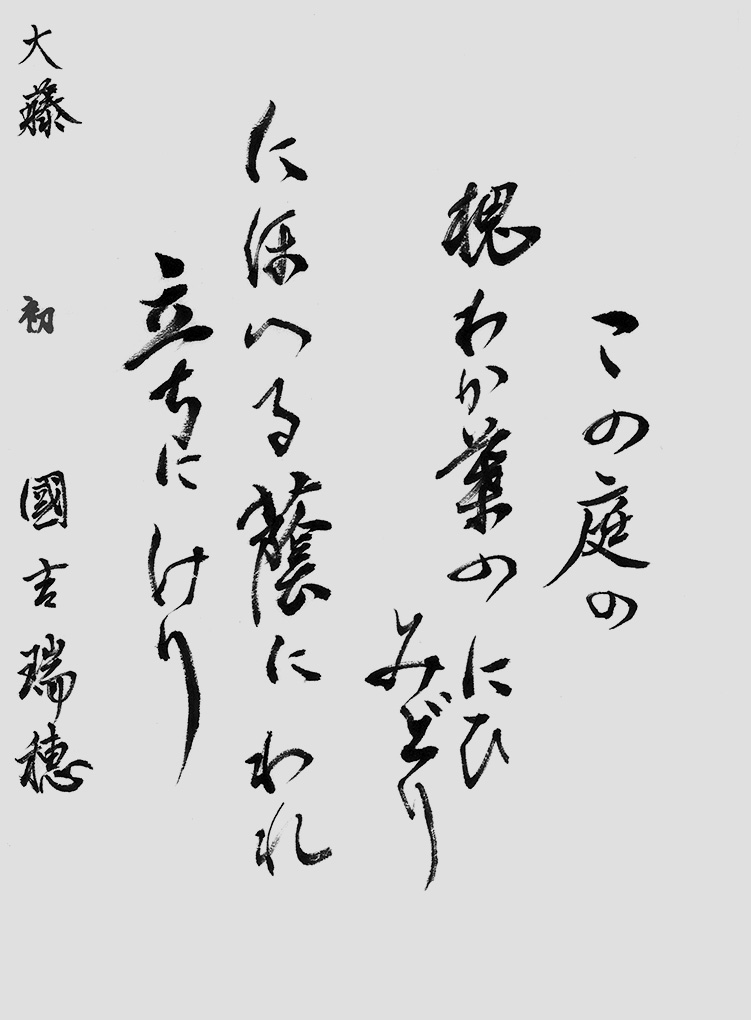 この庭の
槐わか葉の にひ
みどり
にほへる蔭に われ
立ちにけり
大藤 初 國吉瑞穂